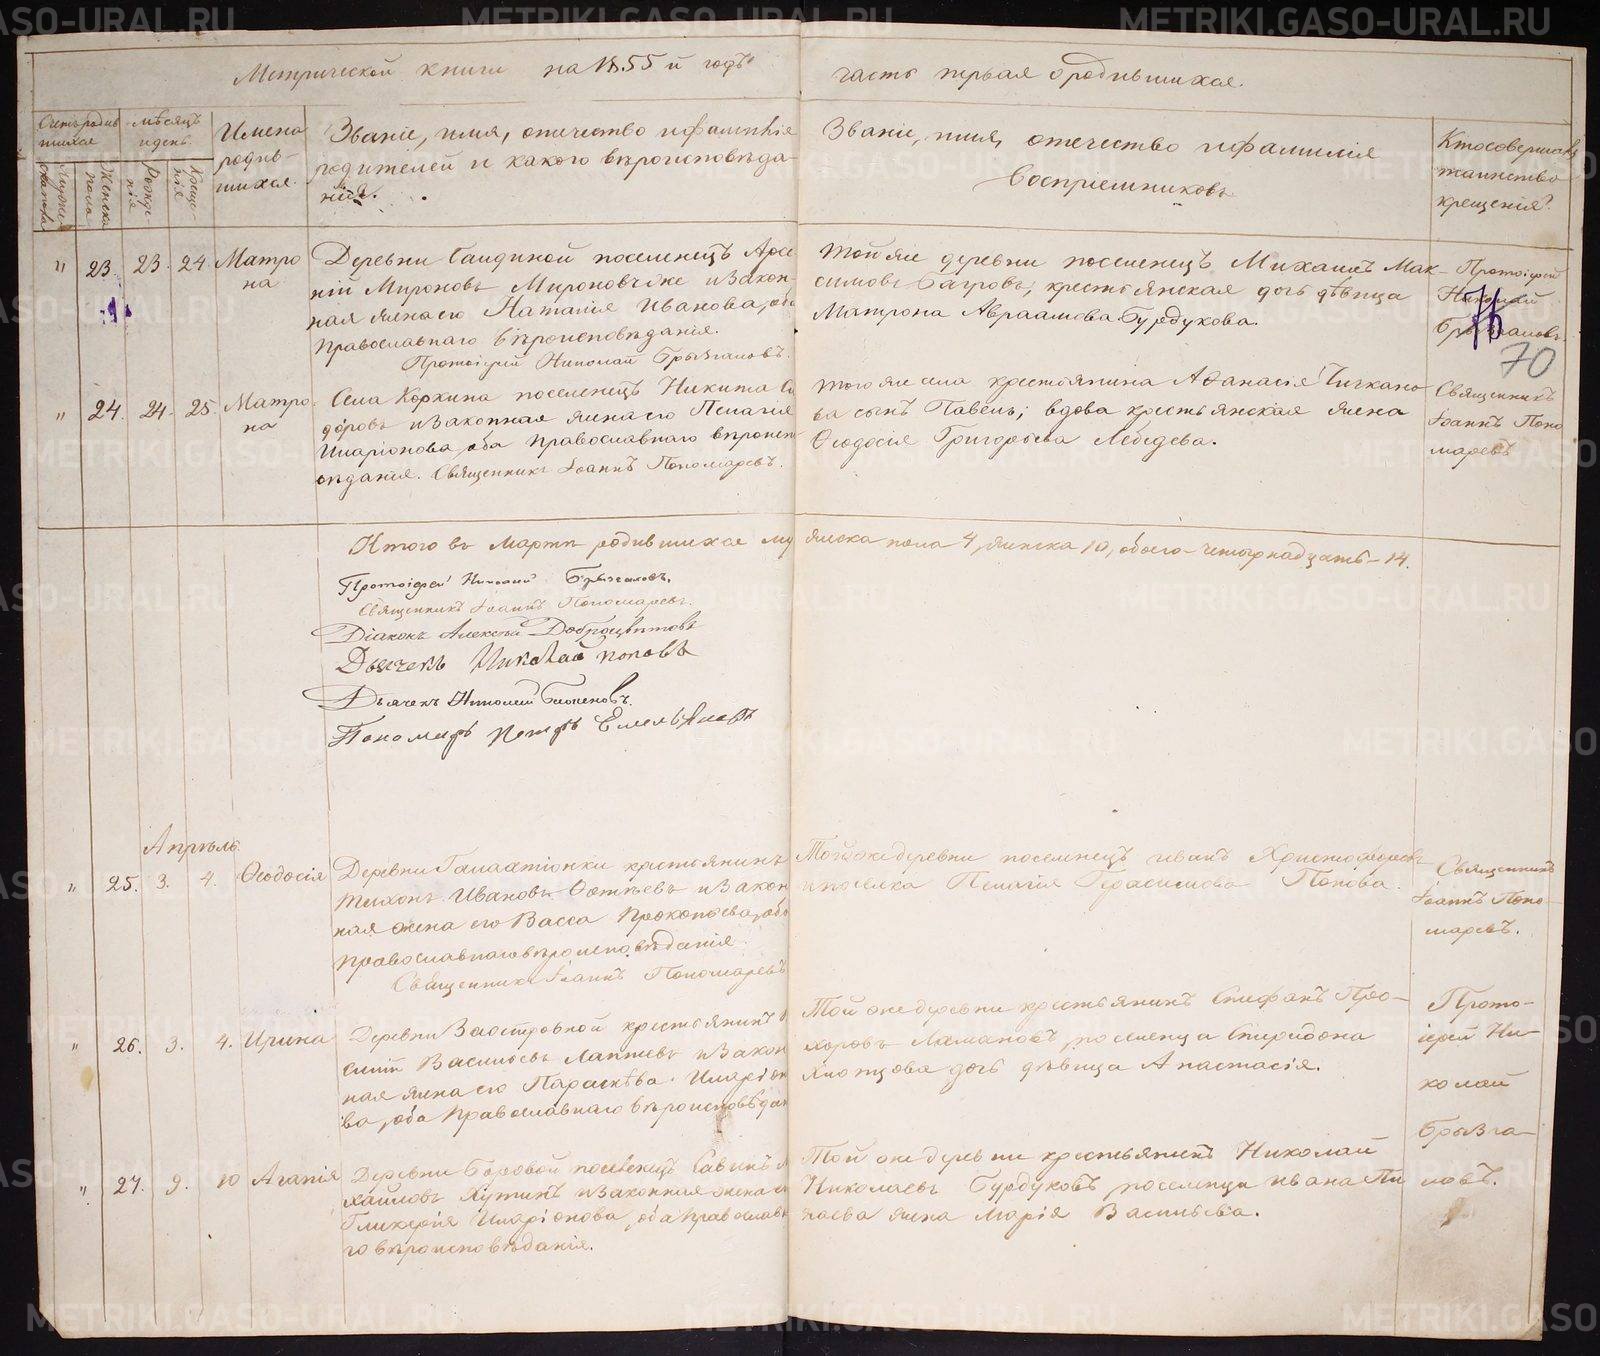 Метрической книги на 1855 й годъ часть первая о родившихся.
Счетъ родив
шихся
Мужеска
пола
Женска
пола
мѣсяцъ
и день
Рожде
нія
Креще-
нія
Имена
родив-
шихся.
Званіе, имя, отчество и фамилія
родителей и какого вѣроисповѣда-
нія.
Званіе, имя, отчество и фамилія
Воспріемниковъ
Кто совершалъ
таинство
крещенія?
" 23. 23. 24. Матро
на
Деревни поселенецъ Арсе
ній Мироновъ и закон
ная жена его Наталія Иванова, оба
Православнаго Вѣроисповѣданія.
Протоіерей Николай Брызгаловъ.
Той же деревни поселенецъ Михаилъ Мак-
симовъ Багровъ, крестьянская дочь дѣвица
Матрона Авраамова Бурдукова.
Протоіерей
Николай
Брызгаловъ
70
" 24. 24. 25. Матро
на
Села Коркина поселенецъ Никита
доровъ и законная жена его Пелагія
Иларіонова, оба Православнаго вѣроисп
овѣданія. Священникъ Іоаннъ Пономаревъ.
того же села крестьянина Аѳанасія
ва сынъ Павелъ; вдова крестьянская жена
Ѳеодосія Григорьева Лебедева.
Священникъ
Іоаннъ Поно
маревъ
Итого въ Мартѣ родившихся му жеска пола 4, женска 10, обоего четырнадцать - 14.
Протоіерей Николай Брызгаловъ.
Священникъ Іоаннъ Пономаревъ.
Діаконъ Алексѣй Доброцвѣтовъ
Дьячекъ Николай Поповъ
Дьячекъ Николай
Пономарь Петръ Емельяновъ
Апрѣль
" 25. 3. 4. Ѳеодосія
Деревни крестьянинъ
Тихонъ Ивановъ и закон
ная жена его Васса Прокопьева, обо
православнаго вѣроисповѣданія
Священникъ Іоаннъ Пономаревъ
Той же деревни поселенецъ Иванъ Христофоровъ
и поселка Пелагія Герасимова Попова.
Священникъ
Іоаннъ Поно-
маревъ.
" 26. 3. 4. Ирина
Деревни Заостровной крестьянинъ
силій Васильевъ Лаптевъ и закон
ная жена его Параскѣва Иларіон
ва, оба Православнаго вѣроисповѣдан
Той же деревни крестьянинъ Стефанъ Про-
хоровъ поселенца Спиридона
дочь дѣвица Анастасія.
Прото-
іерей Ни-
колай
Брызга-
ловъ.
" 27. 9. 10 Агапія
Деревни Боровой поселенецъ Савинъ М
хайловъ и законная жена е
Гликерія Иларіонова, оба православн
го вѣроисповѣданія.
Той же деревни крестьянинъ Николай
Николаевъ Бурдуковъ, поселенца Ивана
жена Марія Васильева.